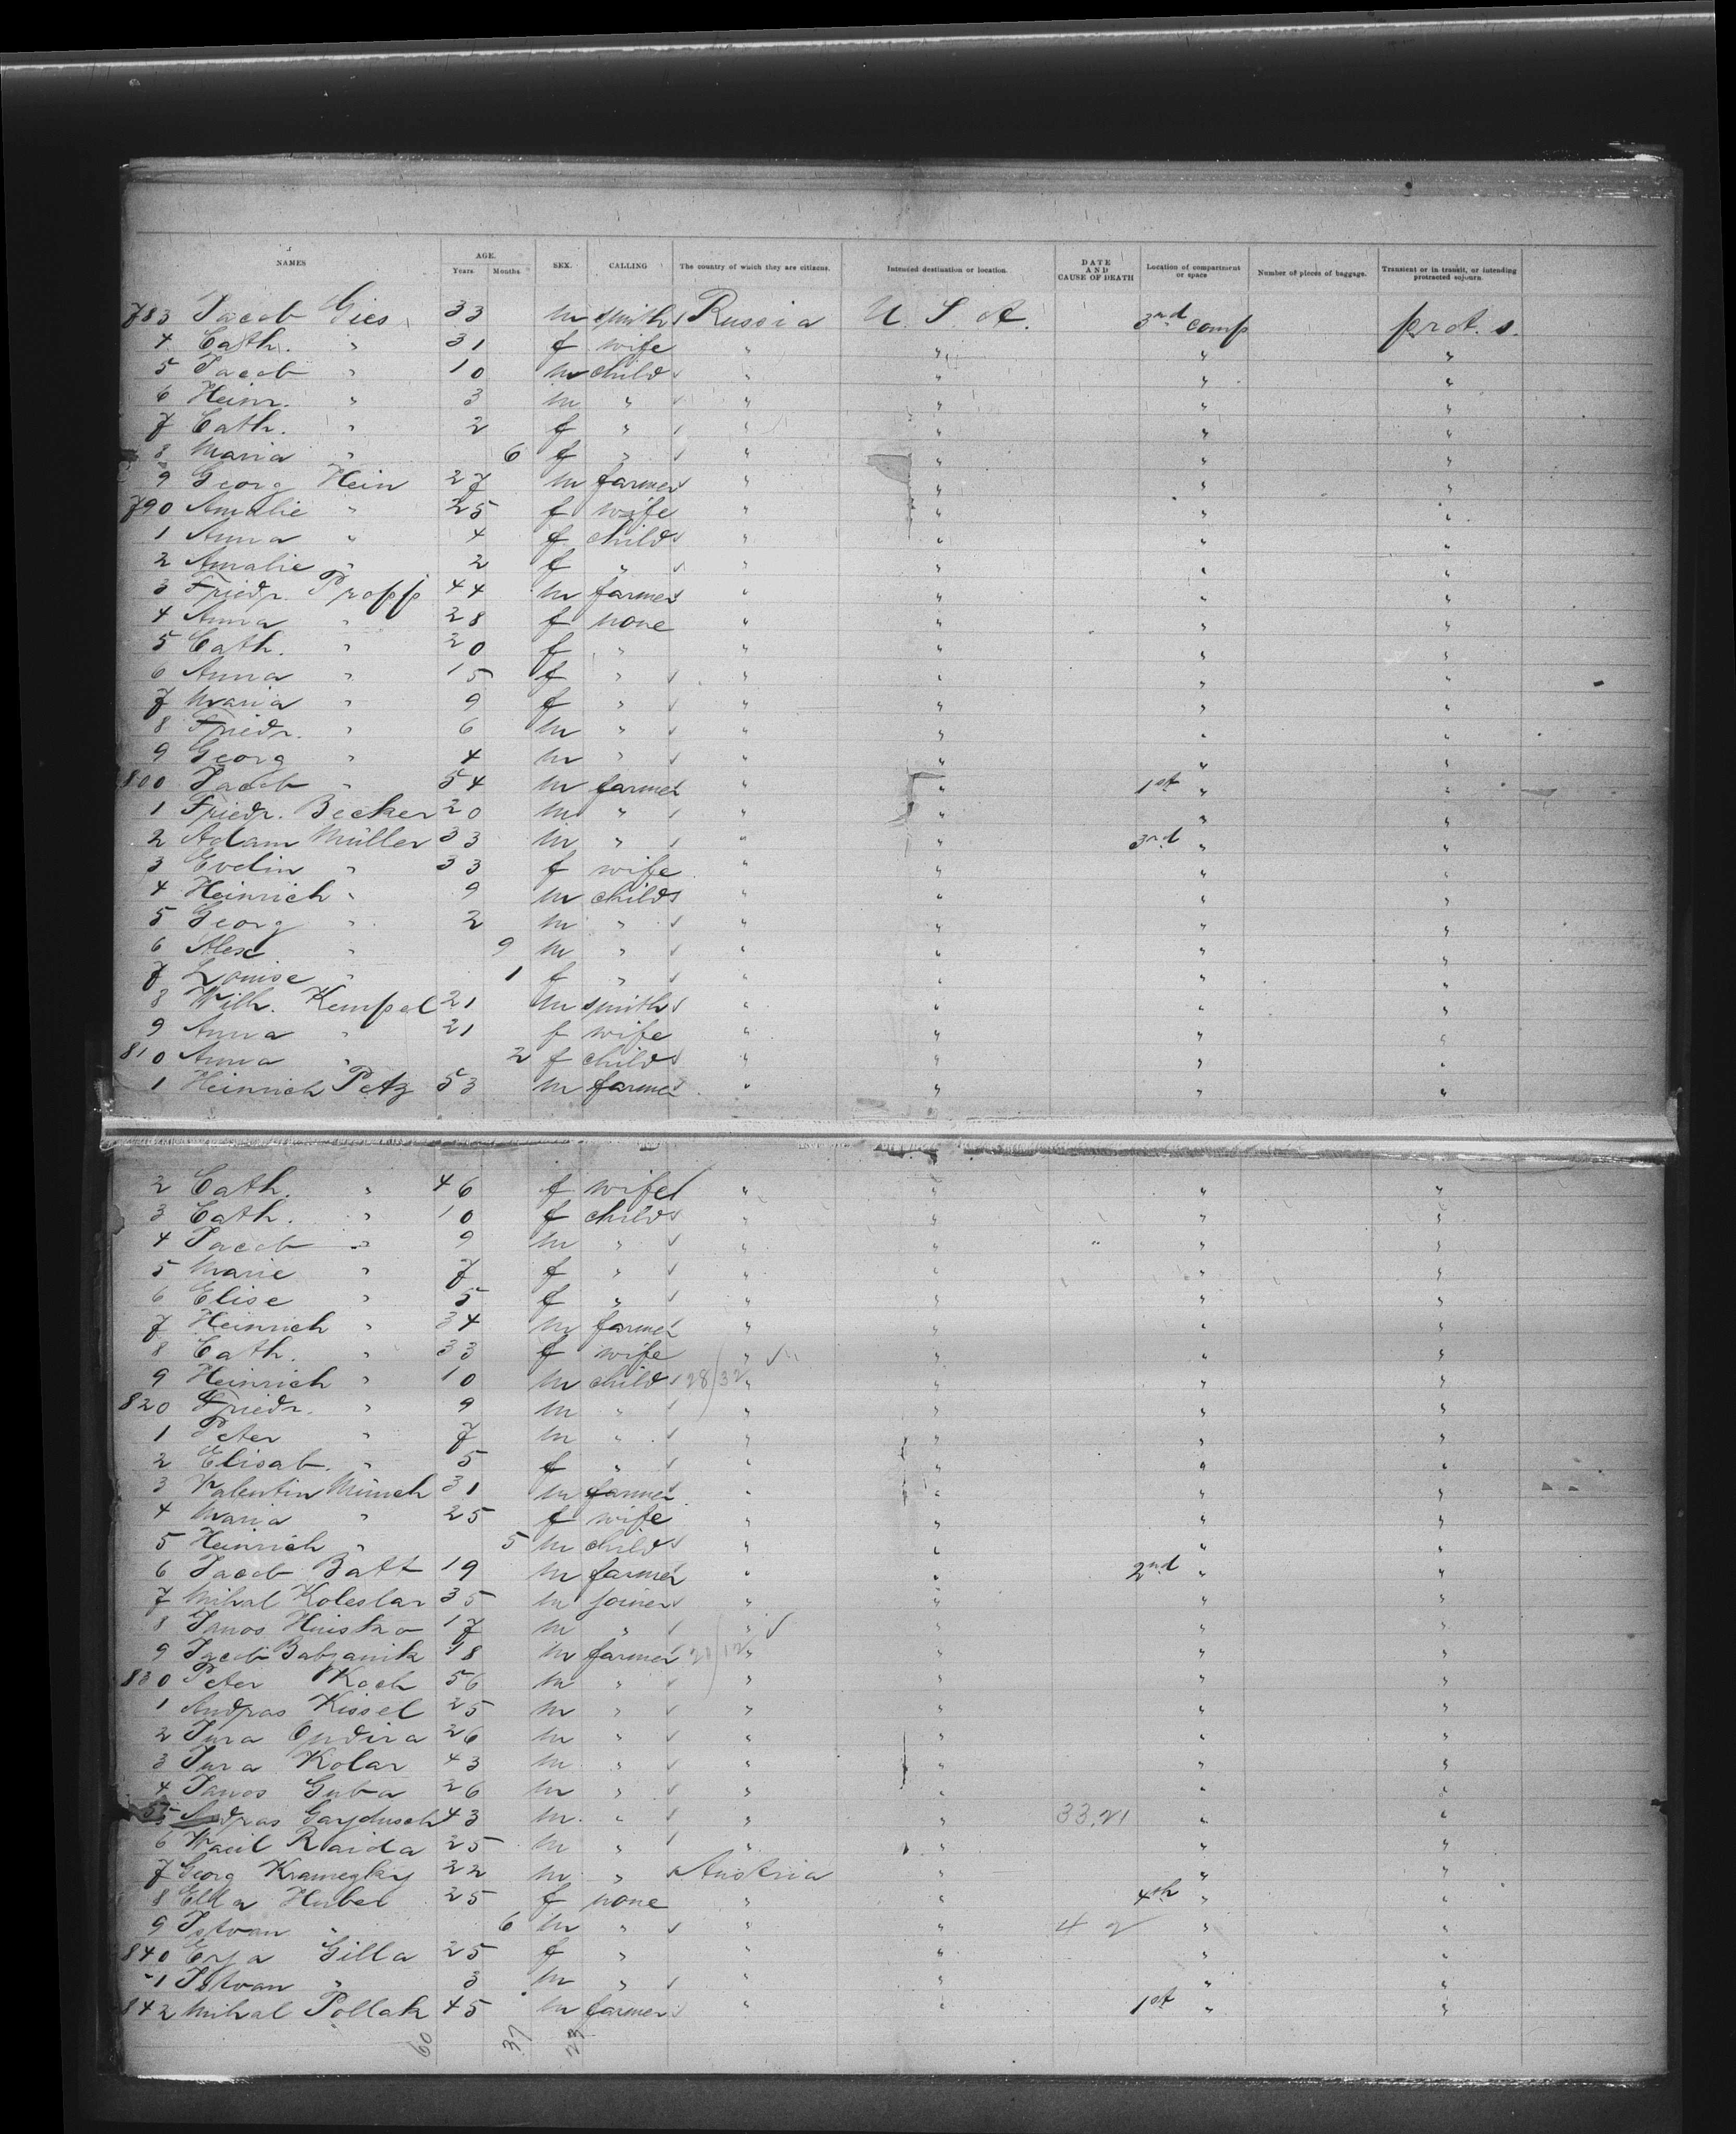 NAMES AGE. Years Months SEX. CALLING The country of which they are citizens. Intended destination or location. DATE AND CAUSE OF DEATH Location of compartment or space Number of pieces of baggage. Transient or in transit, or intending protracted sojourn
783 Jacob Gies 33 m smith Russia U. S. A. 3rd comp prot. s.
4 Cath. " 31 f wife " " " "
5 Jacob " 10 m child " " " "
6 Heinr. " 3 m " " " " "
7 Cath. " 2 f " " " " "
8 Maria " 6 f " " " " "
9 Georg Hein 27 m farmer " " " "
790 Amalie " 25 f wife " " " "
1 Anna " 4 f child " " " "
2 Amalie " 2 f " " " " "
3 Friedr. Propp 44 m farmer " " " "
4 Anna " 28 f none " " " "
5 Cath. " 20 f " " " " "
6 Anna " 15 f " " " " "
7 Maria " 9 f " " " " "
8 Friedr. " 6 m " " " " "
9 Georg " 4 m " " " " "
800 Jacob " 54 m farmer " " 1st " "
1 Friedr. Becker 20 m " " " " "
2 Adam Müller 33 m " " " 3rd " "
3 Evelin " 33 f wife " " " "
4 Heinrich " 9 m child " " " "
5 Georg " 2 m " " " " "
6 Alex " 9 m " " " " "
7 Louise " 1 f " " " " "
8 Wilh. Kempel 21 m smith " " " "
9 Anna " 21 f wife " " " "
810 Anna " 2 f child " " " "
1 Heinrich Petz 53 m farmer " " " "
2 Cath. " 46 f wife " " " "
3 Cath. " 10 f child " " " "
4 Jacob " 9 m " " " " "
5 Marie " 7 f " " " " "
6 Elise " 5 f " " " " "
7 Heinrich " 34 m farmer " " " "
8 Cath. " 33 f wife " " " "
9 Heinrich " 10 m child 28/32 " " " "
820 Friedr. " 9 m " " " " "
1 Peter " 7 m " " " " "
2 Elisab. " 5 f " " " " "
3 Valentin Münch 31 m farmer " " " "
4 Maria " 25 f wife " " " "
5 Heinrich " 5 m child " " " "
6 Jacob Batt 19 m farmer " " 2nd " "
7 Mihal Koleslar 35 m joiner " " " "
8 Janos Huisko 17 m " " " " "
9 Jacob Babjanik 18 m farmer " " " "
830 Peter Koch 56 m " " " " "
1 Andras Kissel 25 m " " " " "
2 Jura 26 m " " " " "
3 Jura Kolar 43 m " " " " "
4 Janos Guba 26 m " " " " "
5 Andras Gaydusch 43 m " " " 33,21 " "
6 Raida 25 m " " " " "
7 Georg 22 m " Austria " " "
8 Ella Hubel 25 f none " " 4th " "
9 Istvan " 6 m " " " 4 2 " "
840 Gilla 25 f " " " " "
1 Istvan " 3 m " " " " "
842 Mihal Pollak 45 m farmer " " 1st " "
60 37 23